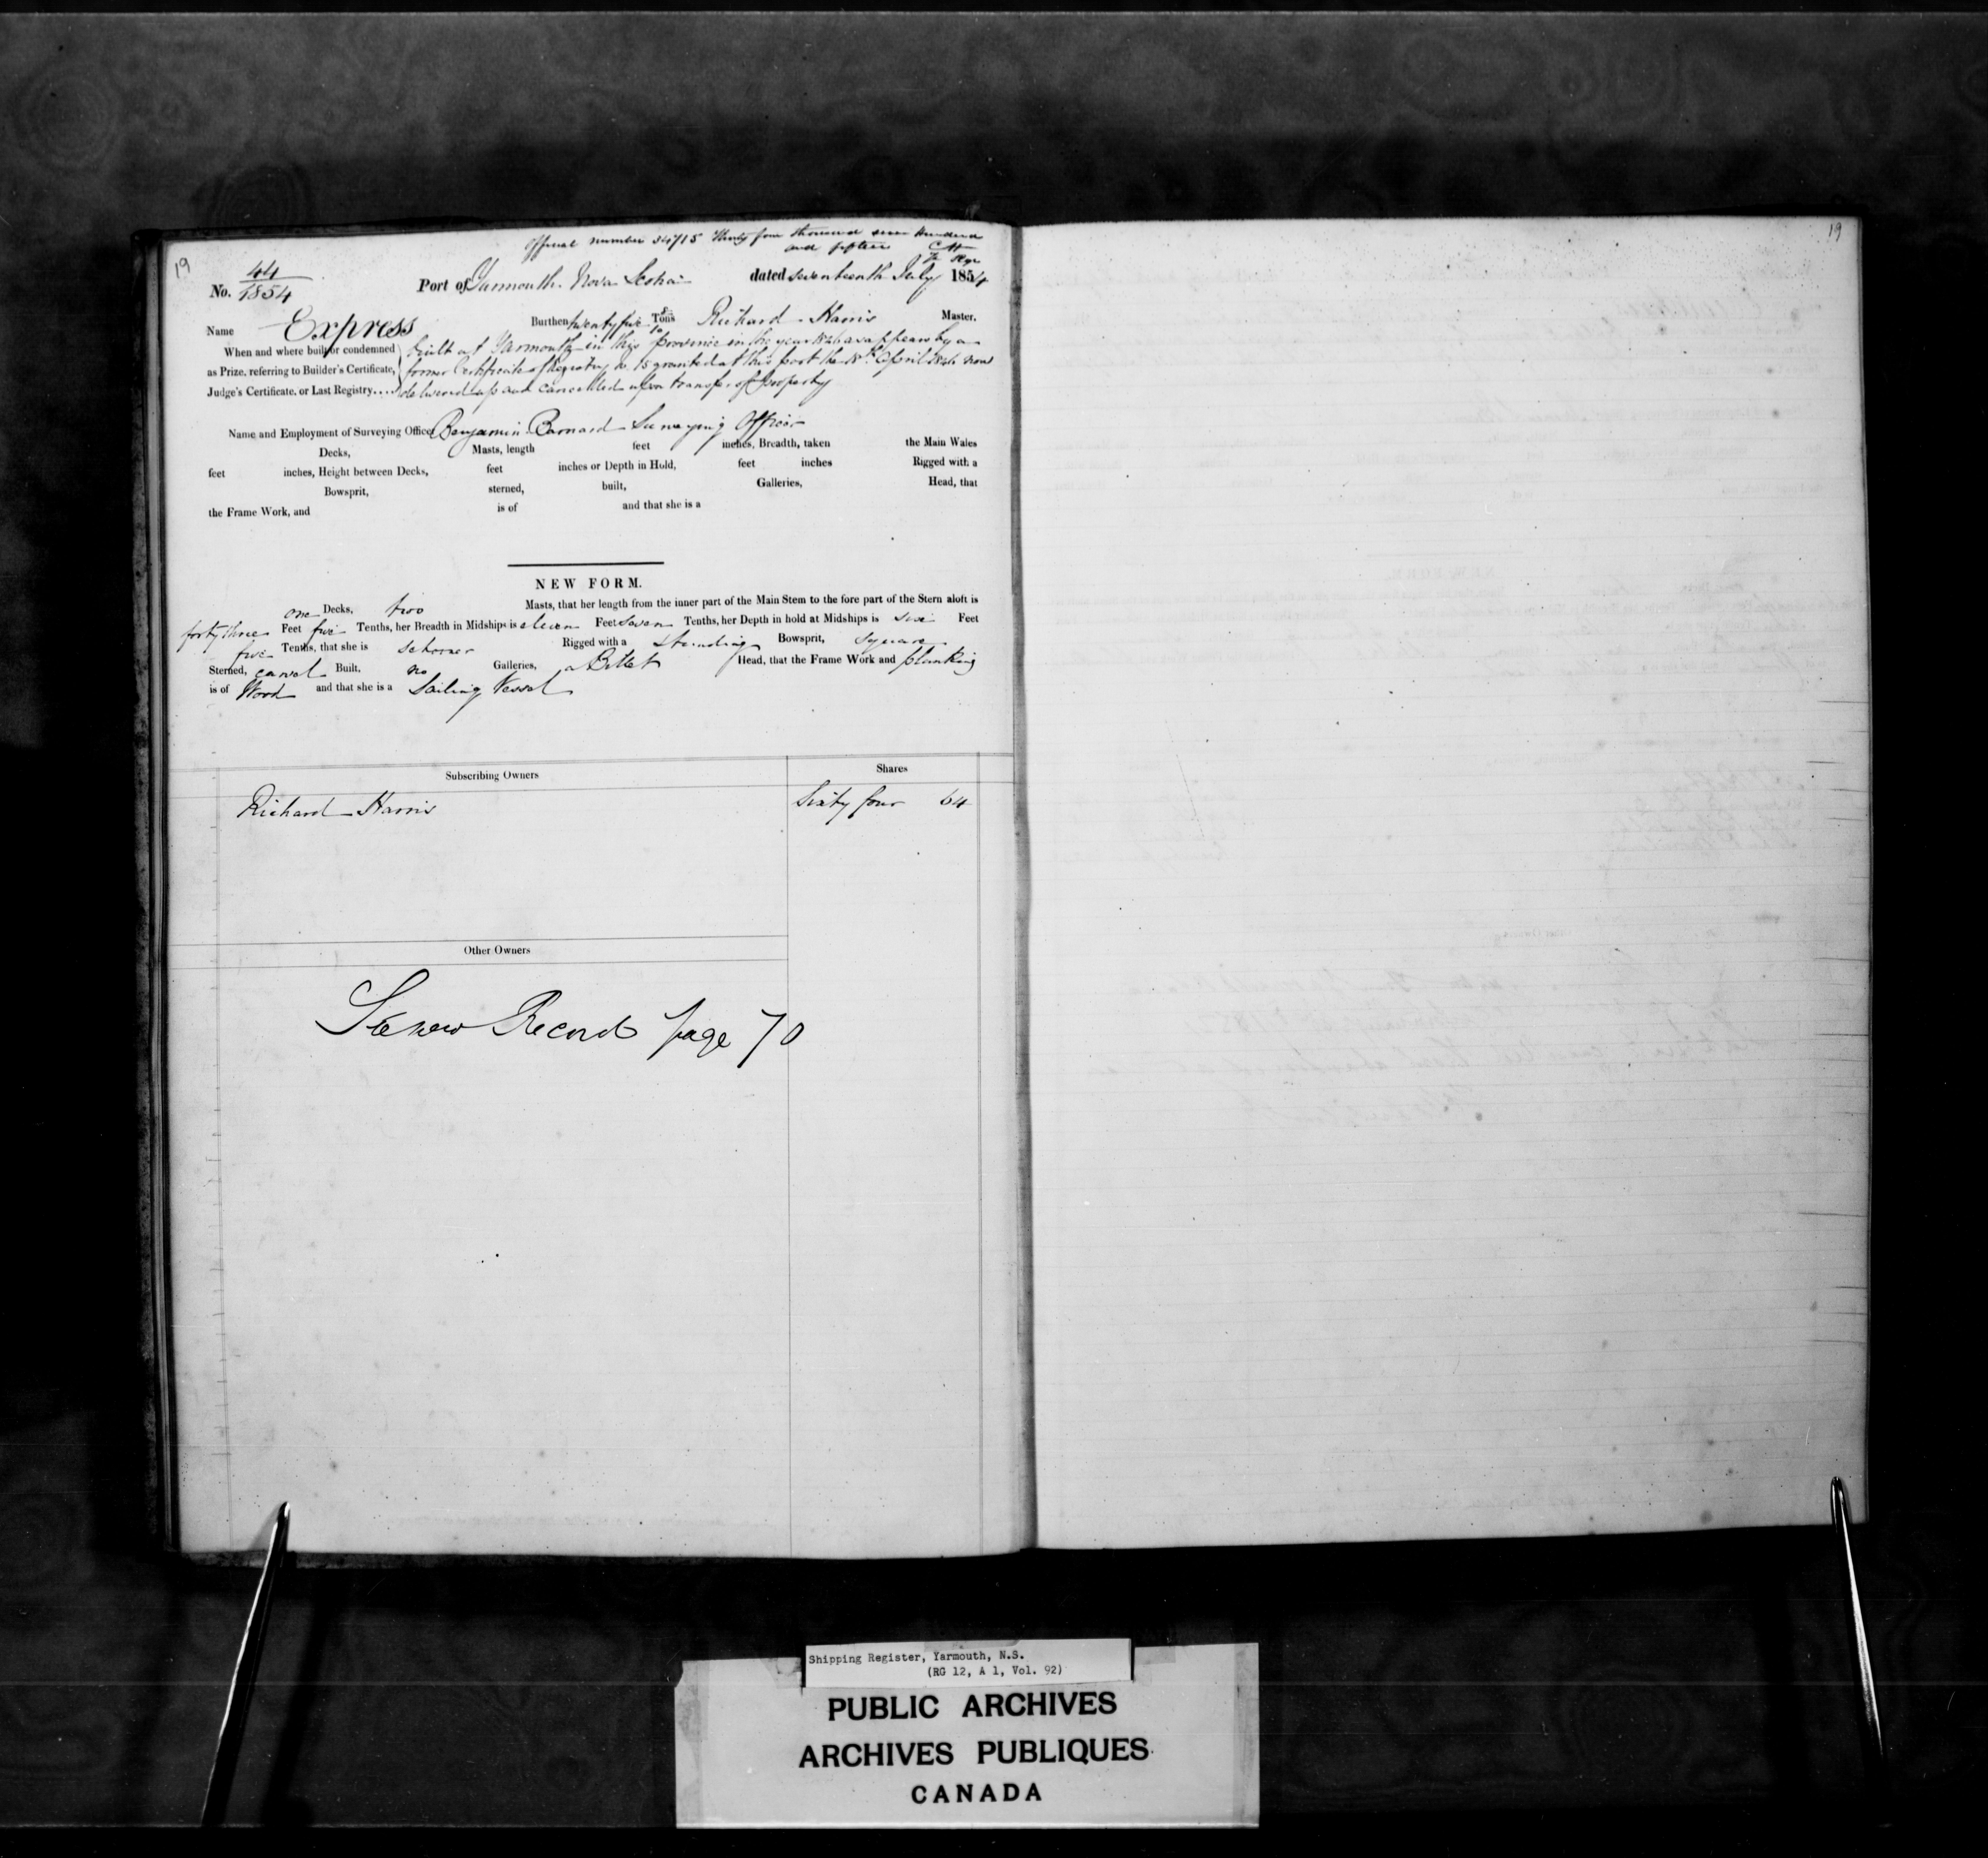 Official number 34715 Thirty four thousand seven hundred
and fifteen
19
19
No. 44/1854 Port of Yarmouth Nova Scotia dated seventeenth July 1854
Name Express Burthen twenty five 8/10 Tons Richard Harris Master.
When and where built or condemned built at Yarmouth in this province in the year 1846 as appears by a
as Prize, referring to Builder's Certificate, former Certificate of Registry No. 15 granted at this port the 18th April 1846 now
Judge's Certificate, or Last Registry.... delivered up and cancelled upon transfer of property
Name and Employment of Surveying Officer Benjamin Barnard Surveying Officer
Decks, Masts, length feet inches, Breadth, taken the Main Wales
feet inches, Height between Decks, feet inches or Depth in Hold, feet inches Rigged with a
Bowsprit, sterned, built, Galleries, Head, that
the Frame Work, and is of and that she is a
NEW FORM.
one Decks, two Masts, that her length from the inner part of the Main Stem to the fore part of the Stern aloft is
forty three Feet five Tenths, her Breadth in Midships is eleven Feet seven Tenths, her Depth in hold at Midships is Feet
five Tenths, that she is schooner Rigged with a standing Bowsprit, square
Sterned, carvel Built, no Galleries, a Billet Head, that the Frame Work and planking
is of Wood and that she is a Sailing Vessel
Subscribing Owners Shares
Richard Harris Sixty four 64
Other Owners
See new Record page 70
Shipping Register, Yarmouth, N.S.
(RG 12, A 1, Vol. 92)
PUBLIC ARCHIVES
ARCHIVES PUBLIQUES
CANADA